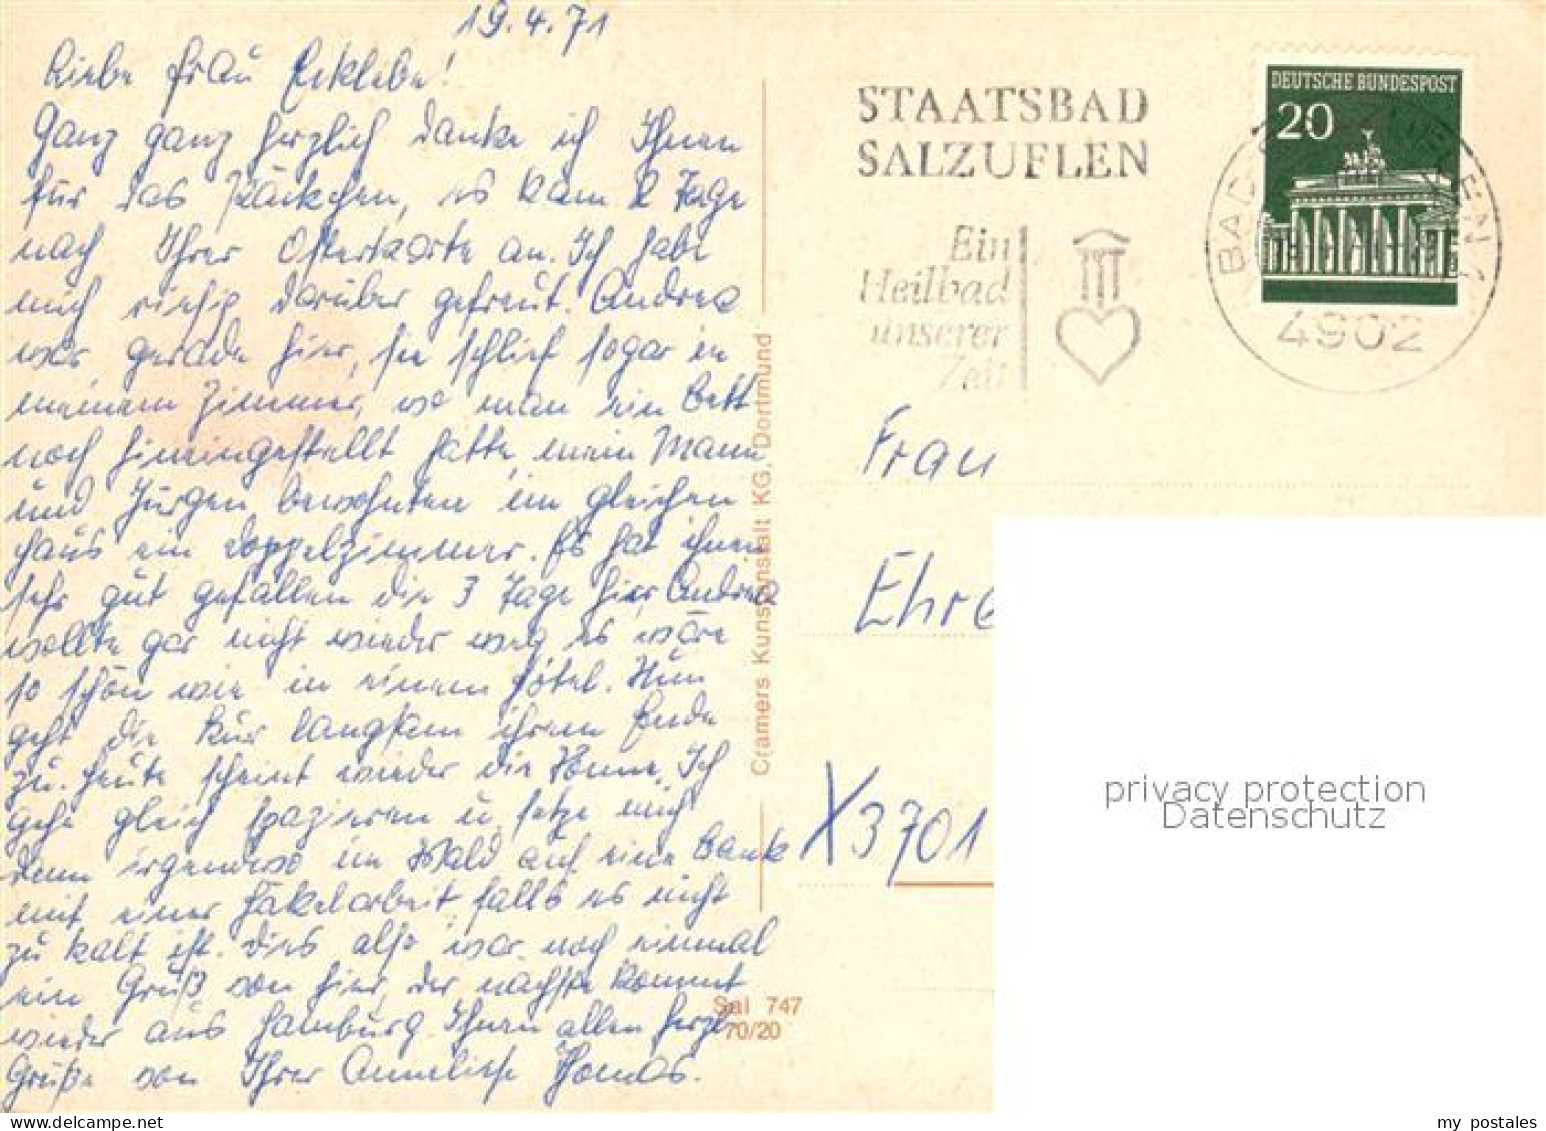 19.4.71
Liebe Frau Erklebe!
Ganz ganz herzlich danke ich Ihnen
für das Päckchen, es kam 2 Tage
nach Ihrer Osterkarte an. Ich habe
mich riesig darüber gefreut. Andrea
war gerade hier, sie schlief sogar in
meinem Zimmer, wo man ein Bett
noch hineingestellt hatte, mein Mann
und Jürgen bewohnten im gleichen
Haus ein Doppelzimmer. Es hat ihnen
sehr gut gefallen die 3 Tage hier, Andrea
wollte gar nicht wieder weg es wäre
so schön wie in einem Hótel. Nun
geht die Kur langsam ihrem Ende
zu. Heute scheint wieder die Sonne. Ich
gehe gleich spazieren u. setze mich
dann irgendwo im Wald auf eine Bank
mit einer Häkelarbeit, falls es nicht
zu kalt ist. Dies also war noch einmal
ein Gruß von hier, der nächste kommt
wieder aus Hamburg. Ihnen allen herzl.
Grüße von Ihrer Anneliese
Cramers Kunstanstalt KG, Dortmund
Sal 747
70/20
STAATSBAD
SALZUFLEN
Ein
Heilbad
unserer
Zeit
DEUTSCHE BUNDESPOST
20
BAD
4902
Frau
Ehre
X3701
privacy protection
Datenschutz
my postales